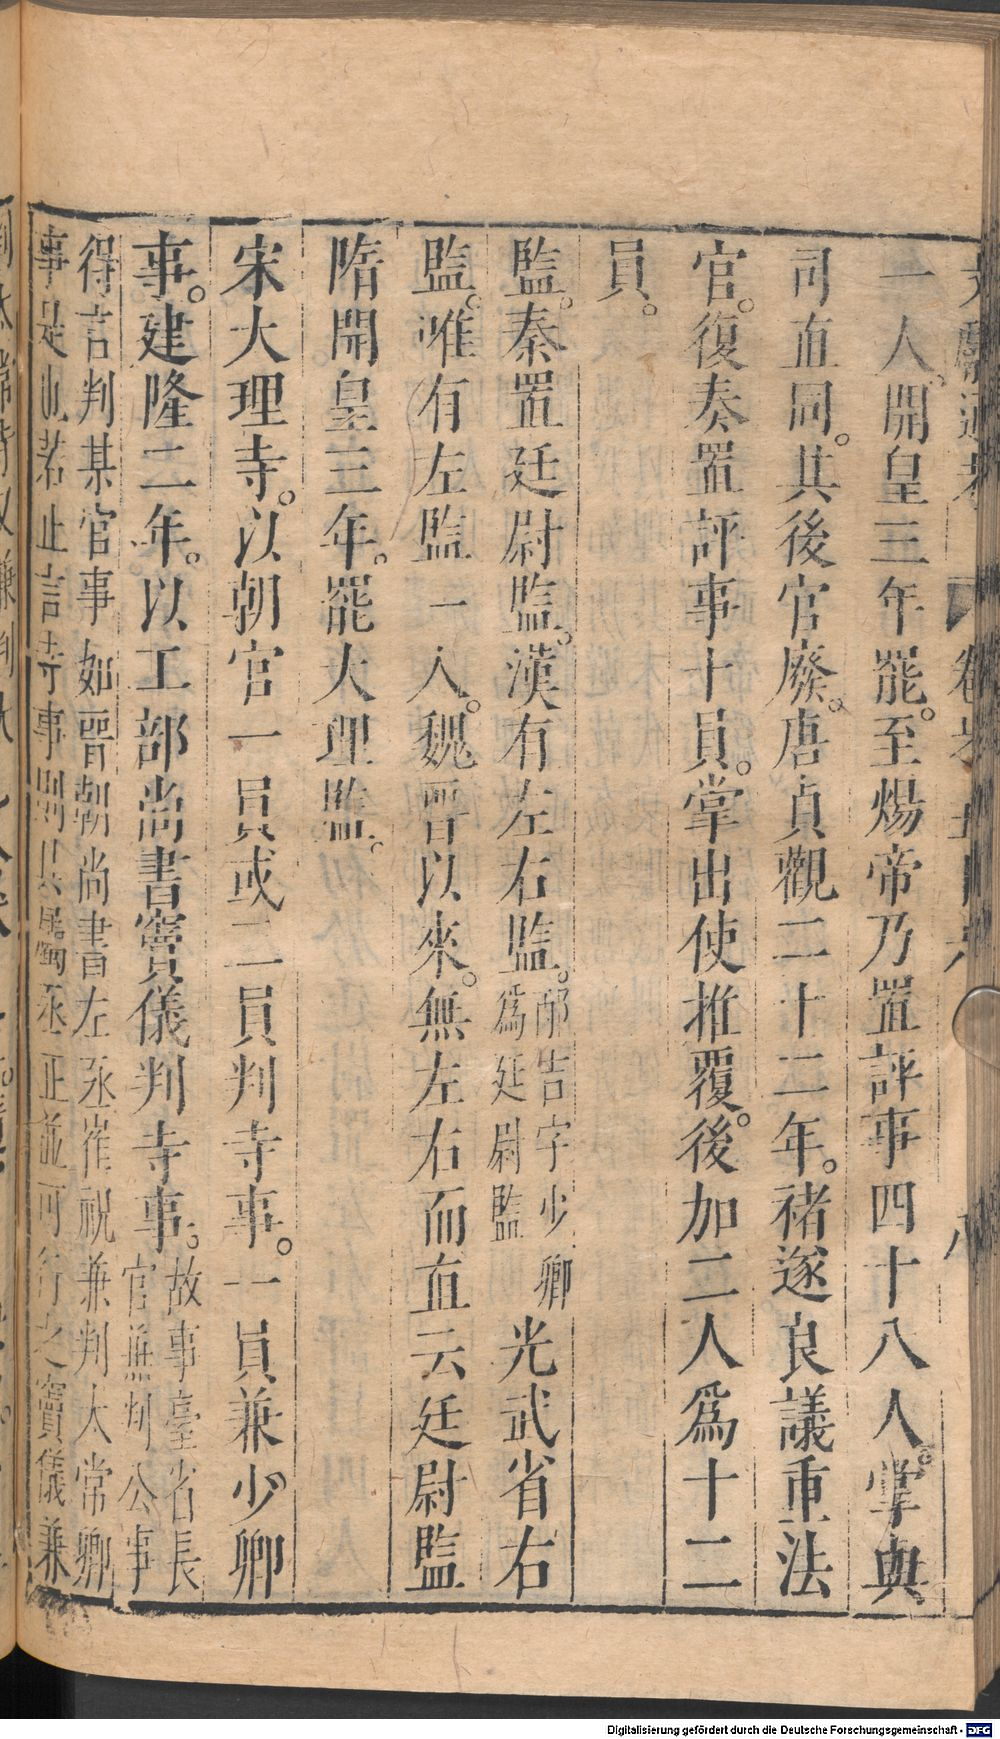 一人。開皇三年罷。至煬帝乃置評事四十八人。掌典
司直同。其後官廢。唐貞觀二十二年。褚遂良議重法
官。復奏置評事十員。掌出使推覆。後加二人爲十二
員。
監。秦置廷尉監。漢有左右監。
邴吉字少卿
爲廷尉監
光武省右
監。唯有左監一人。魏晉以來。無左右而直云廷尉監
隋開皇三年。罷大理監。
宋大理寺。以朝官一員或二員判寺事。一員兼少卿
事。建隆二年。以工部尚書竇儀判寺事。
故事臺省長
官無判公事
得言判某官事如晉朝尚書左丞崔棁兼判太常卿
事是也若止言寺事則其屬丞正並可行之竇儀兼
Digitalisierung gefördert durch die Deutsche Forschungsgemeinschaft - DFG